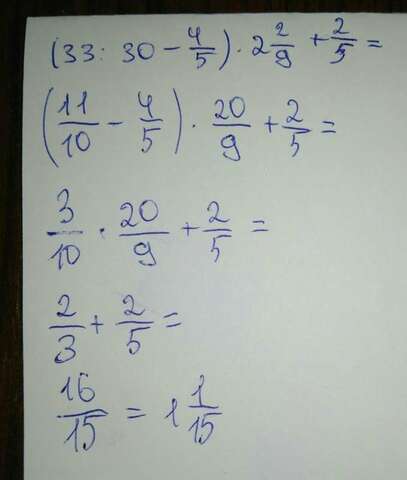 (33 : 30 - 4/5) · 2 2/9 + 2/5 =
(11/10 - 4/5) · 20/9 + 2/5 =
3/10 · 20/9 + 2/5 =
2/3 + 2/5 =
16/15 = 1 1/15